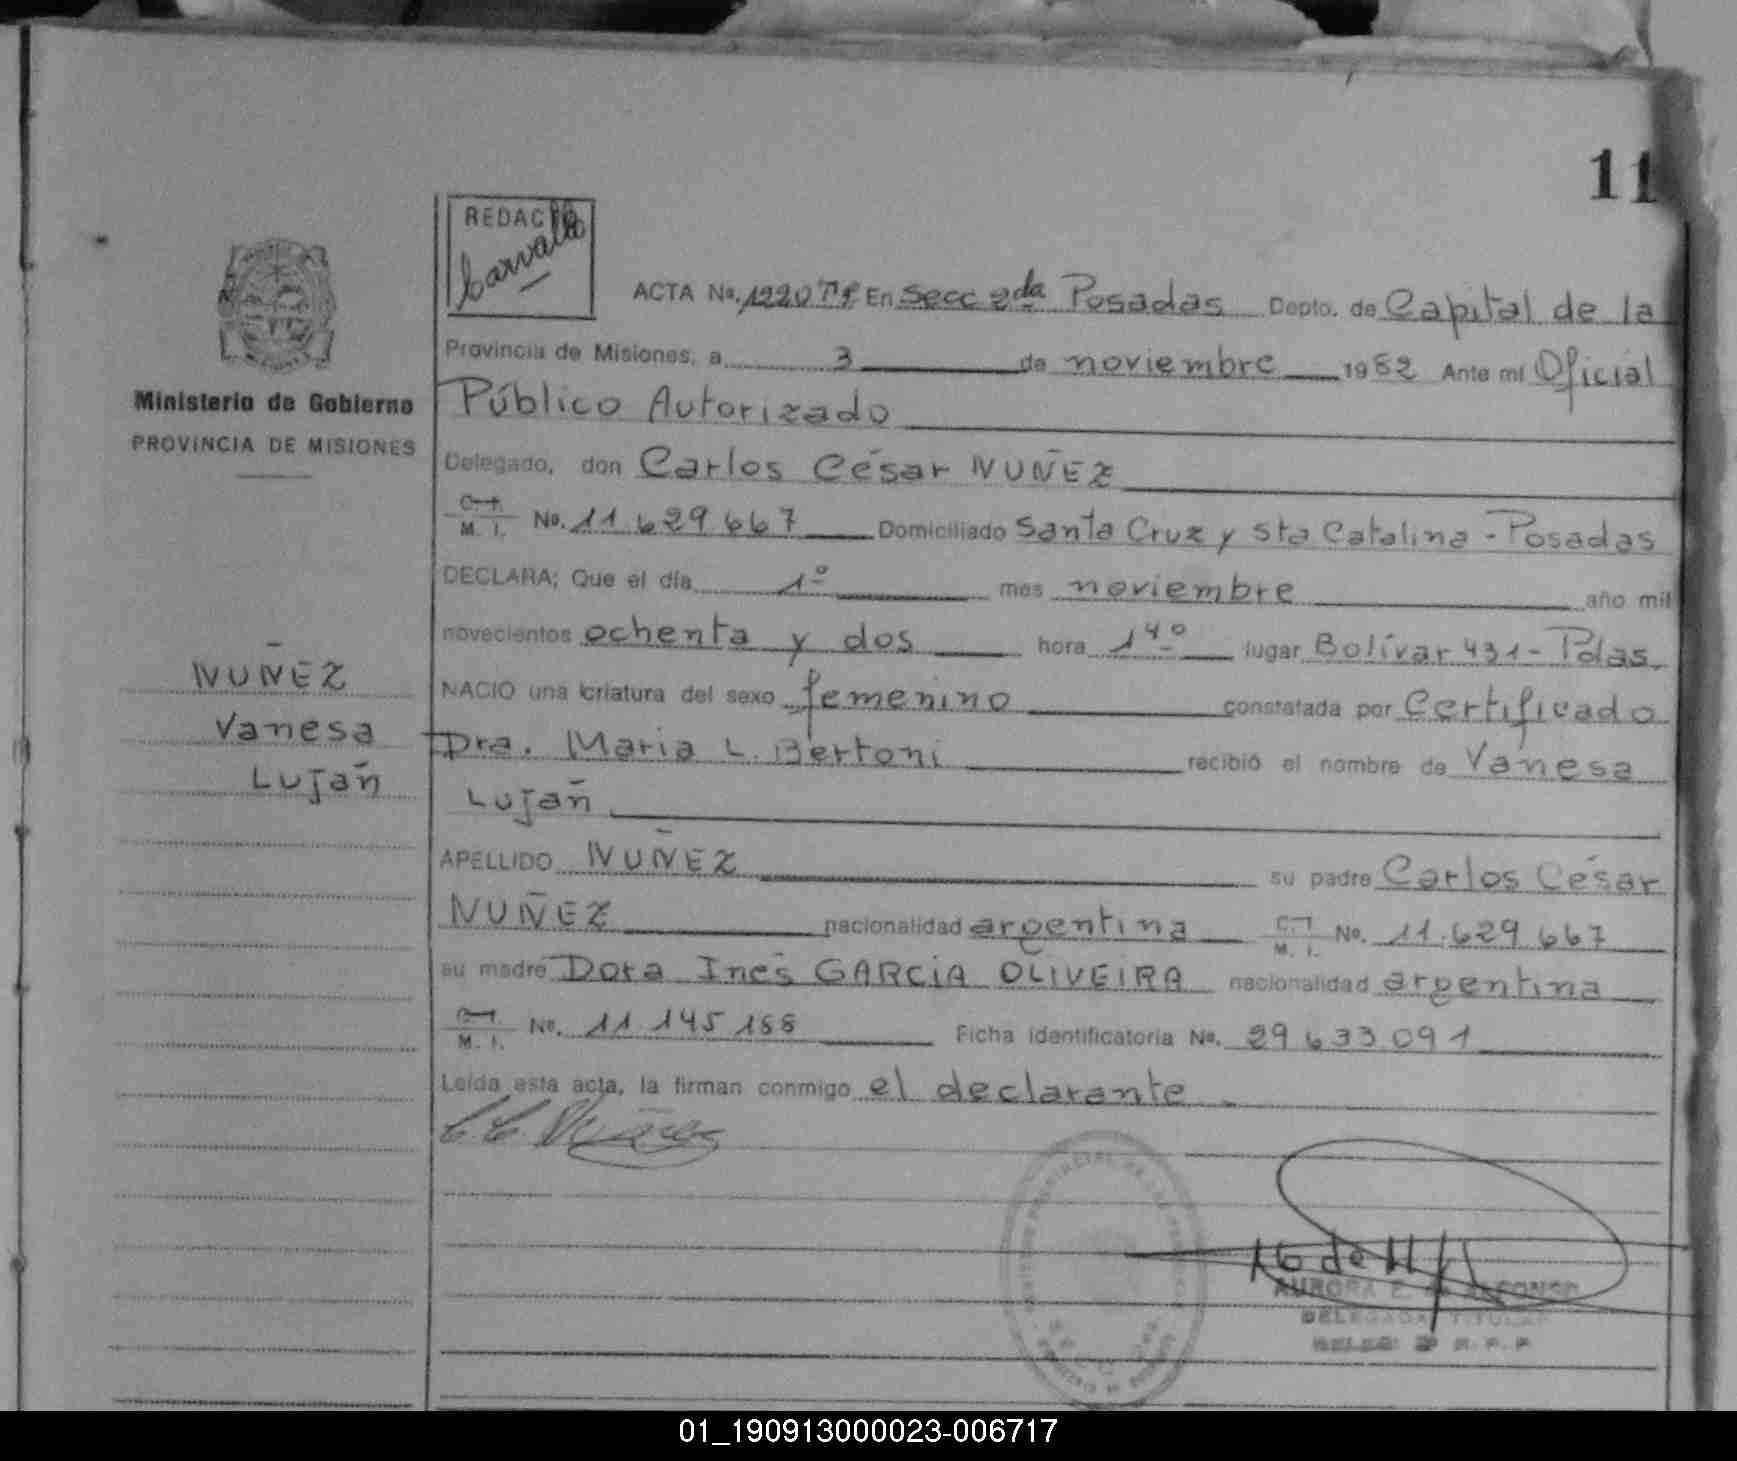 11
REDAC
Carvallo
ACTA No. 1220 Tº Iº En Secc 2da Posadas Depto. de Capital de la
Provincia de Misiones, a 3 de noviembre 1982 Ante mi Oficial
Público Autorizado
Ministerio de Gobierno
PROVINCIA DE MISIONES
Delegado, don Carlos César NUÑEZ
C.I. M. I. No. 11.629.667 Domiciliado Santa Cruz y Sta Catalina - Posadas
DECLARA; Que el día 1º mes noviembre año mil
novecientos ochenta y dos hora 14º lugar Bolívar 431 - Pdas.
NUÑEZ
Vanesa
Luján
NACIO una criatura del sexo femenino constatada por Certificado
Dra. Maria L. Bertoni recibió el nombre de Vanesa
Luján
APELLIDO NUÑEZ su padre Carlos César
NUÑEZ nacionalidad argentina C.I. M. I. No. 11.629.667
su madre Dora Inés GARCIA OLIVEIRA nacionalidad argentina
C.I. M. I. No. 11.145.188 Ficha identificatoria No. 29.633.091
Leída esta acta, la firman conmigo el declarante.
C. C. Nuñez
16 de 11
AURORA E. de ALFONSO
DELEGADA TITULAR
R. P. P.
01_190913000023-006717